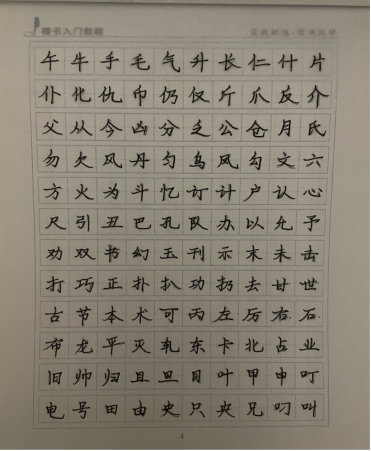 楷书入门教程
实战训练·常用汉字
午牛手毛气升长仁什片
仆化仇币仍仅斤爪反介
父从今凶分乏公仓月氏
勿欠风丹匀乌凤勾文六
方火为斗忆订计户认心
尺引丑巴孔队办以允予
劝双书幻玉刊示末未击
打巧正扑扒功扔去甘世
古节本术可丙左厉右石
布龙平灭轧东卡北占业
旧帅归且旦目叶甲申叮
电号田由史只央兄叼叫
4